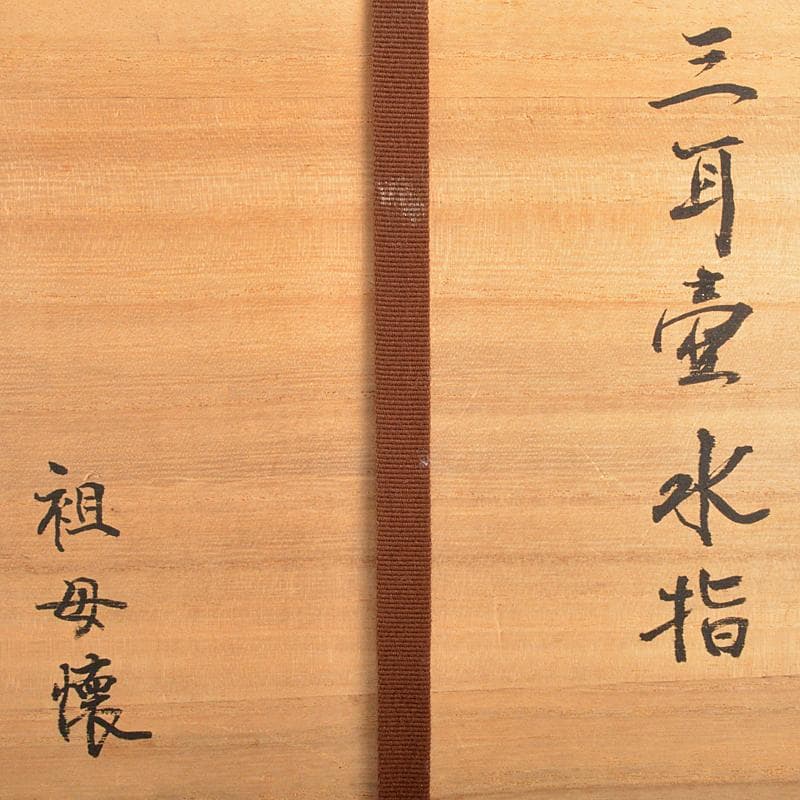 三耳壷水指
祖母懐